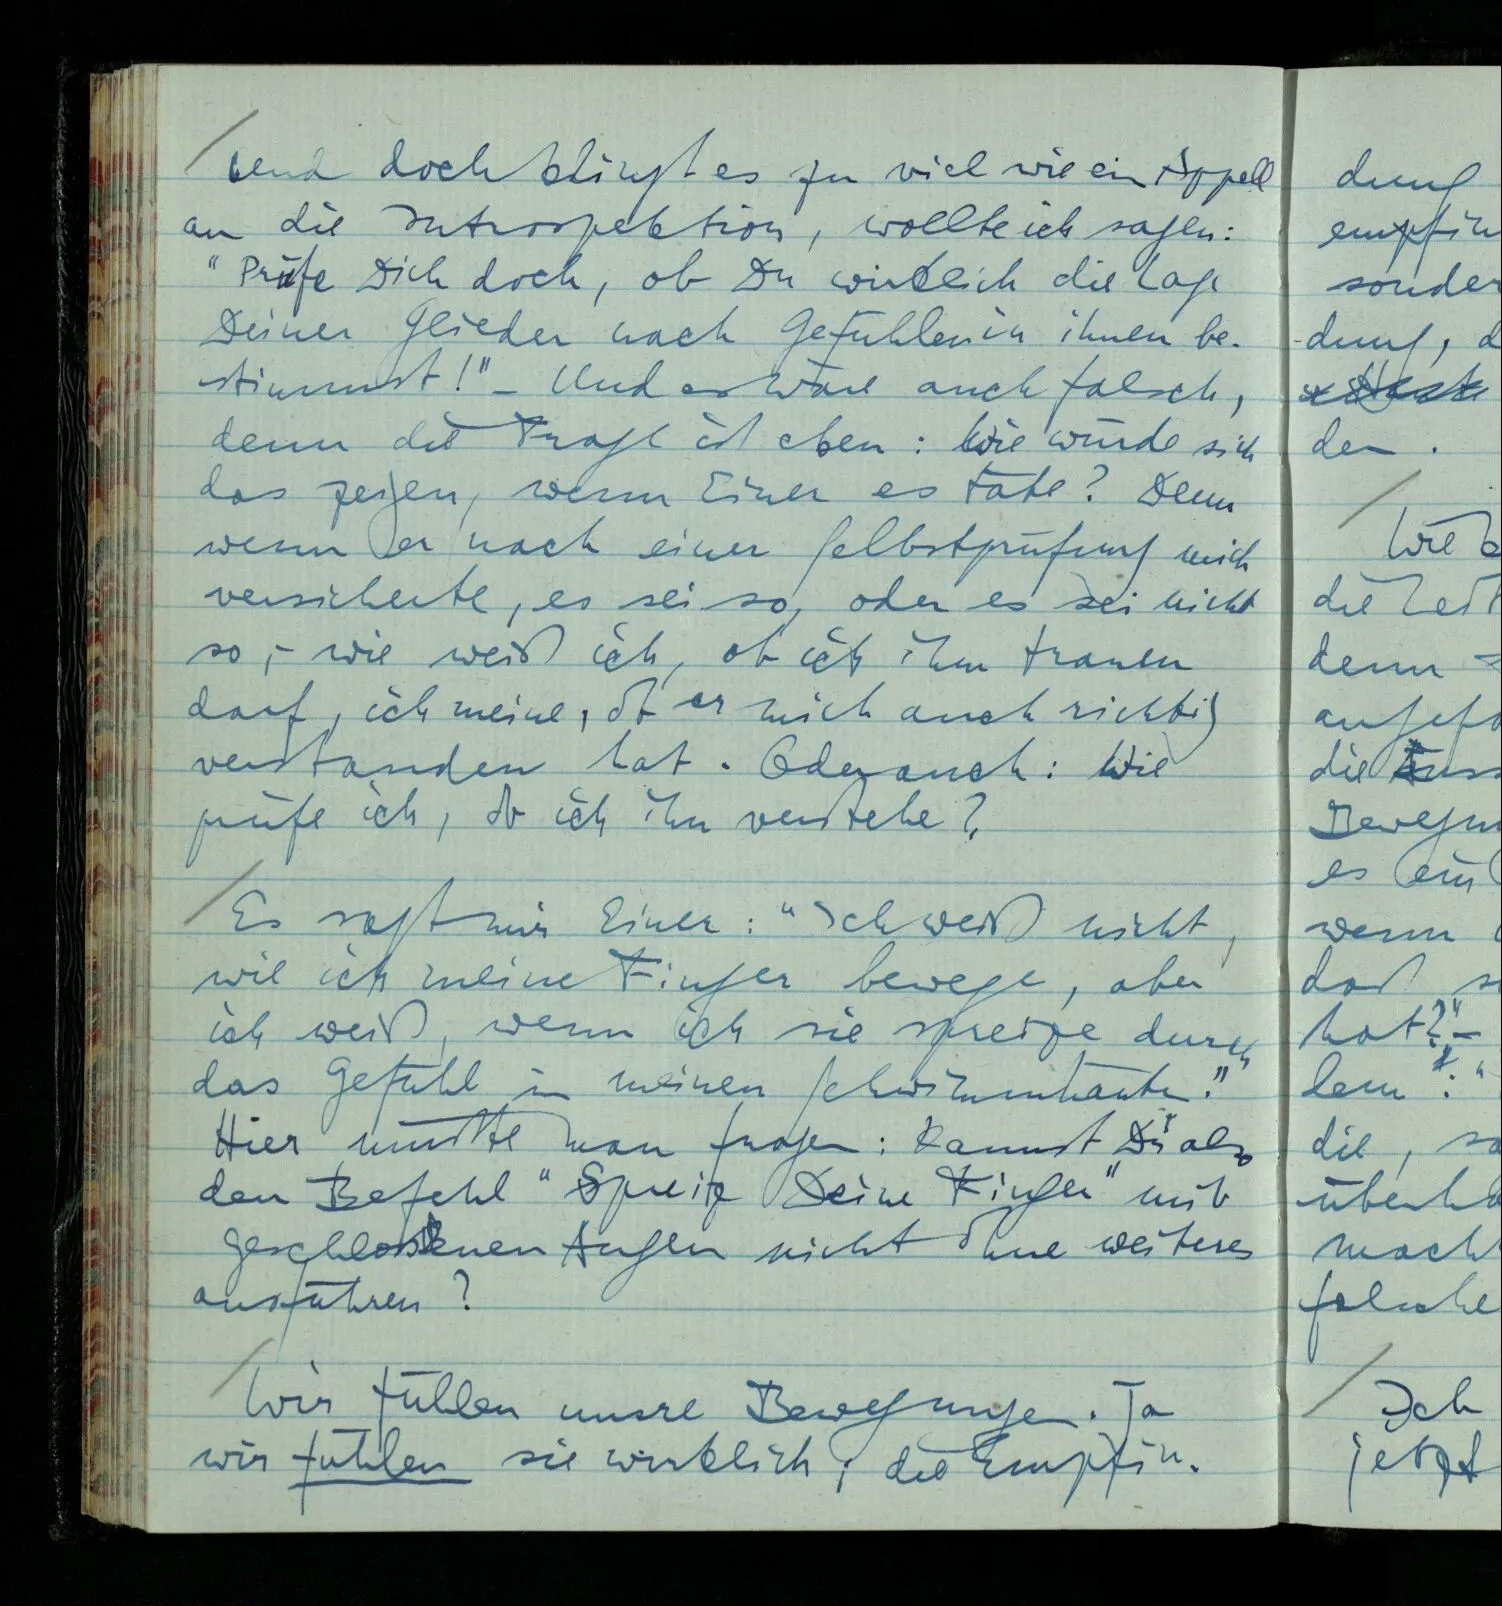 Und doch klingt es zu viel wie ein Appell
an die Introspektion, wollte ich sagen:
"Prüfe Dich doch, ob Du wirklich die Lage
Deiner Glieder nach Gefühlen in ihnen be-
stimmst!" – Und es wäre auch falsch,
denn die Frage ist eben: Wie würde sich
das zeigen, wenn Einer es täte? Denn
wenn er nach einer Selbstprüfung mich
versicherte, es sei so, oder es sei nicht
so, – wie weiß ich, ob ich ihm trauen
darf, ich meine, ob er mich auch richtig
verstanden hat. Oder auch: Wie
prüfe ich, ob ich ihn verstehe?
Es sagt mir Einer: "Ich weiß nicht,
wie ich meine Finger bewege, aber
ich weiß, wenn ich sie spreize durch
das Gefühl in meinen Schwimmhäuten."
Hier müßte man fragen: Kannst Du also
den Befehl "Spreiz Deine Finger" mit
geschlossenen Augen nicht ohne weiteres
ausführen?
Wir fühlen unsre Bewegungen. Ja
wir fühlen sie wirklich; die Empfin-
dung
empfin
sonder
dung, d
den.
Wie k
die
denn
angefo
die
Bewegun
es ein
wenn
daß s
hat?" –
dem: "
die, so
überha
mach
falsche
Ich
jetzt